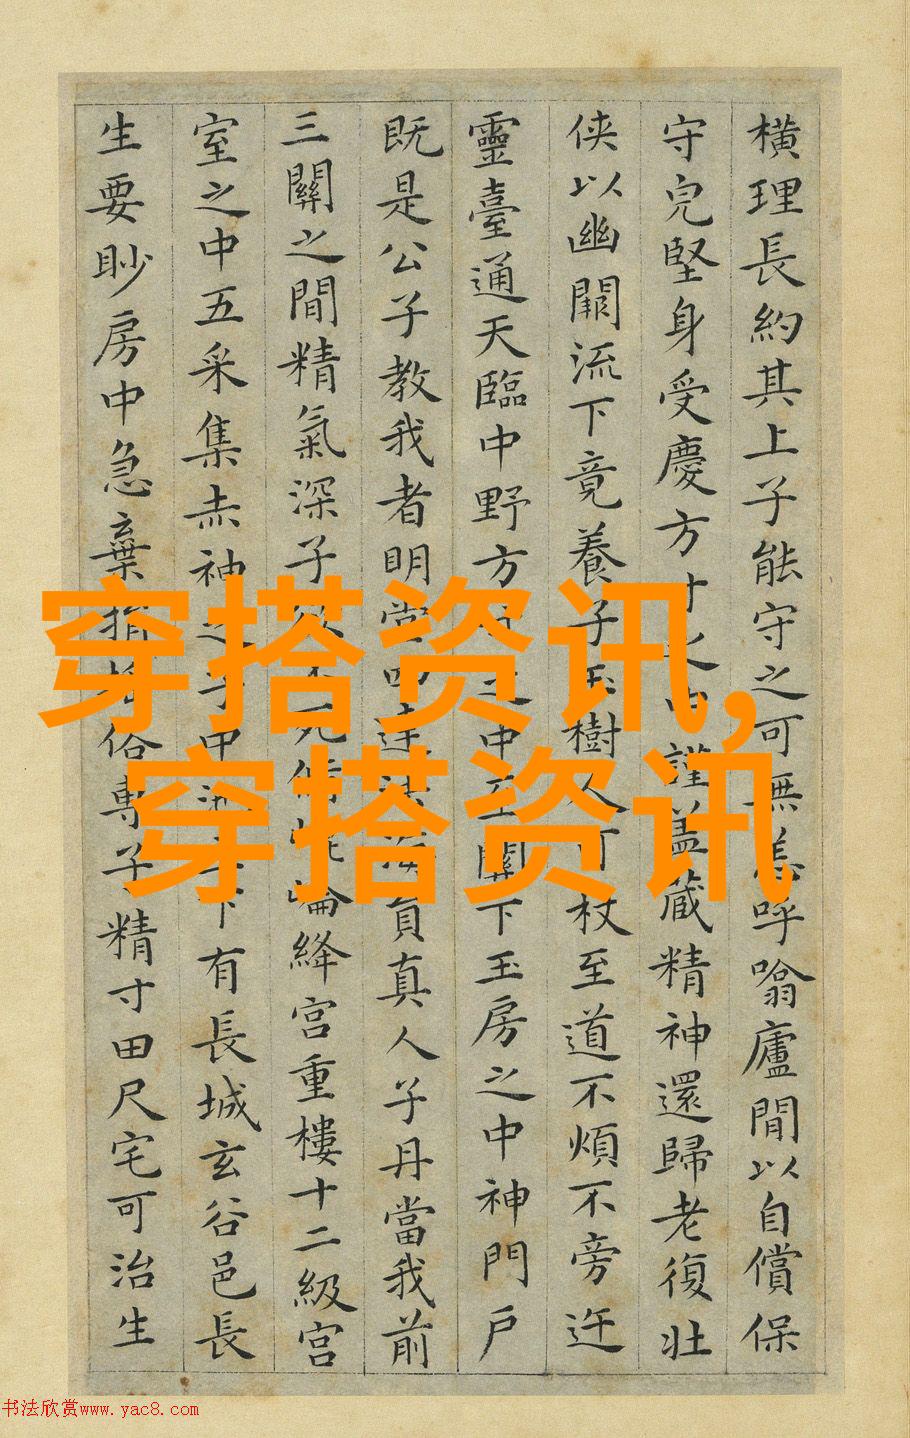 橫理長約其上子能守之可無恙呼噏廬間以自償保
守兒堅身受慶方寸之中謹蓋藏精神還歸老復壯
俠以幽闕流下竟養子玉樹人可杖至道不煩不旁迕
靈臺通天臨中野方寸之中至關下玉房之中神門戶
既是公子教我者明堂四達法海員真人子丹當我前
三關之間精氣深子欲不死脩崐崘絳宮重樓十二級宮
室之中五采集赤神之子中池立下有長城玄谷邑長
生要眇房中急棄捐搖俗專子精寸田尺宅可治生
穿搭资讯,
穿搭资讯
书法欣赏www.yac8.com